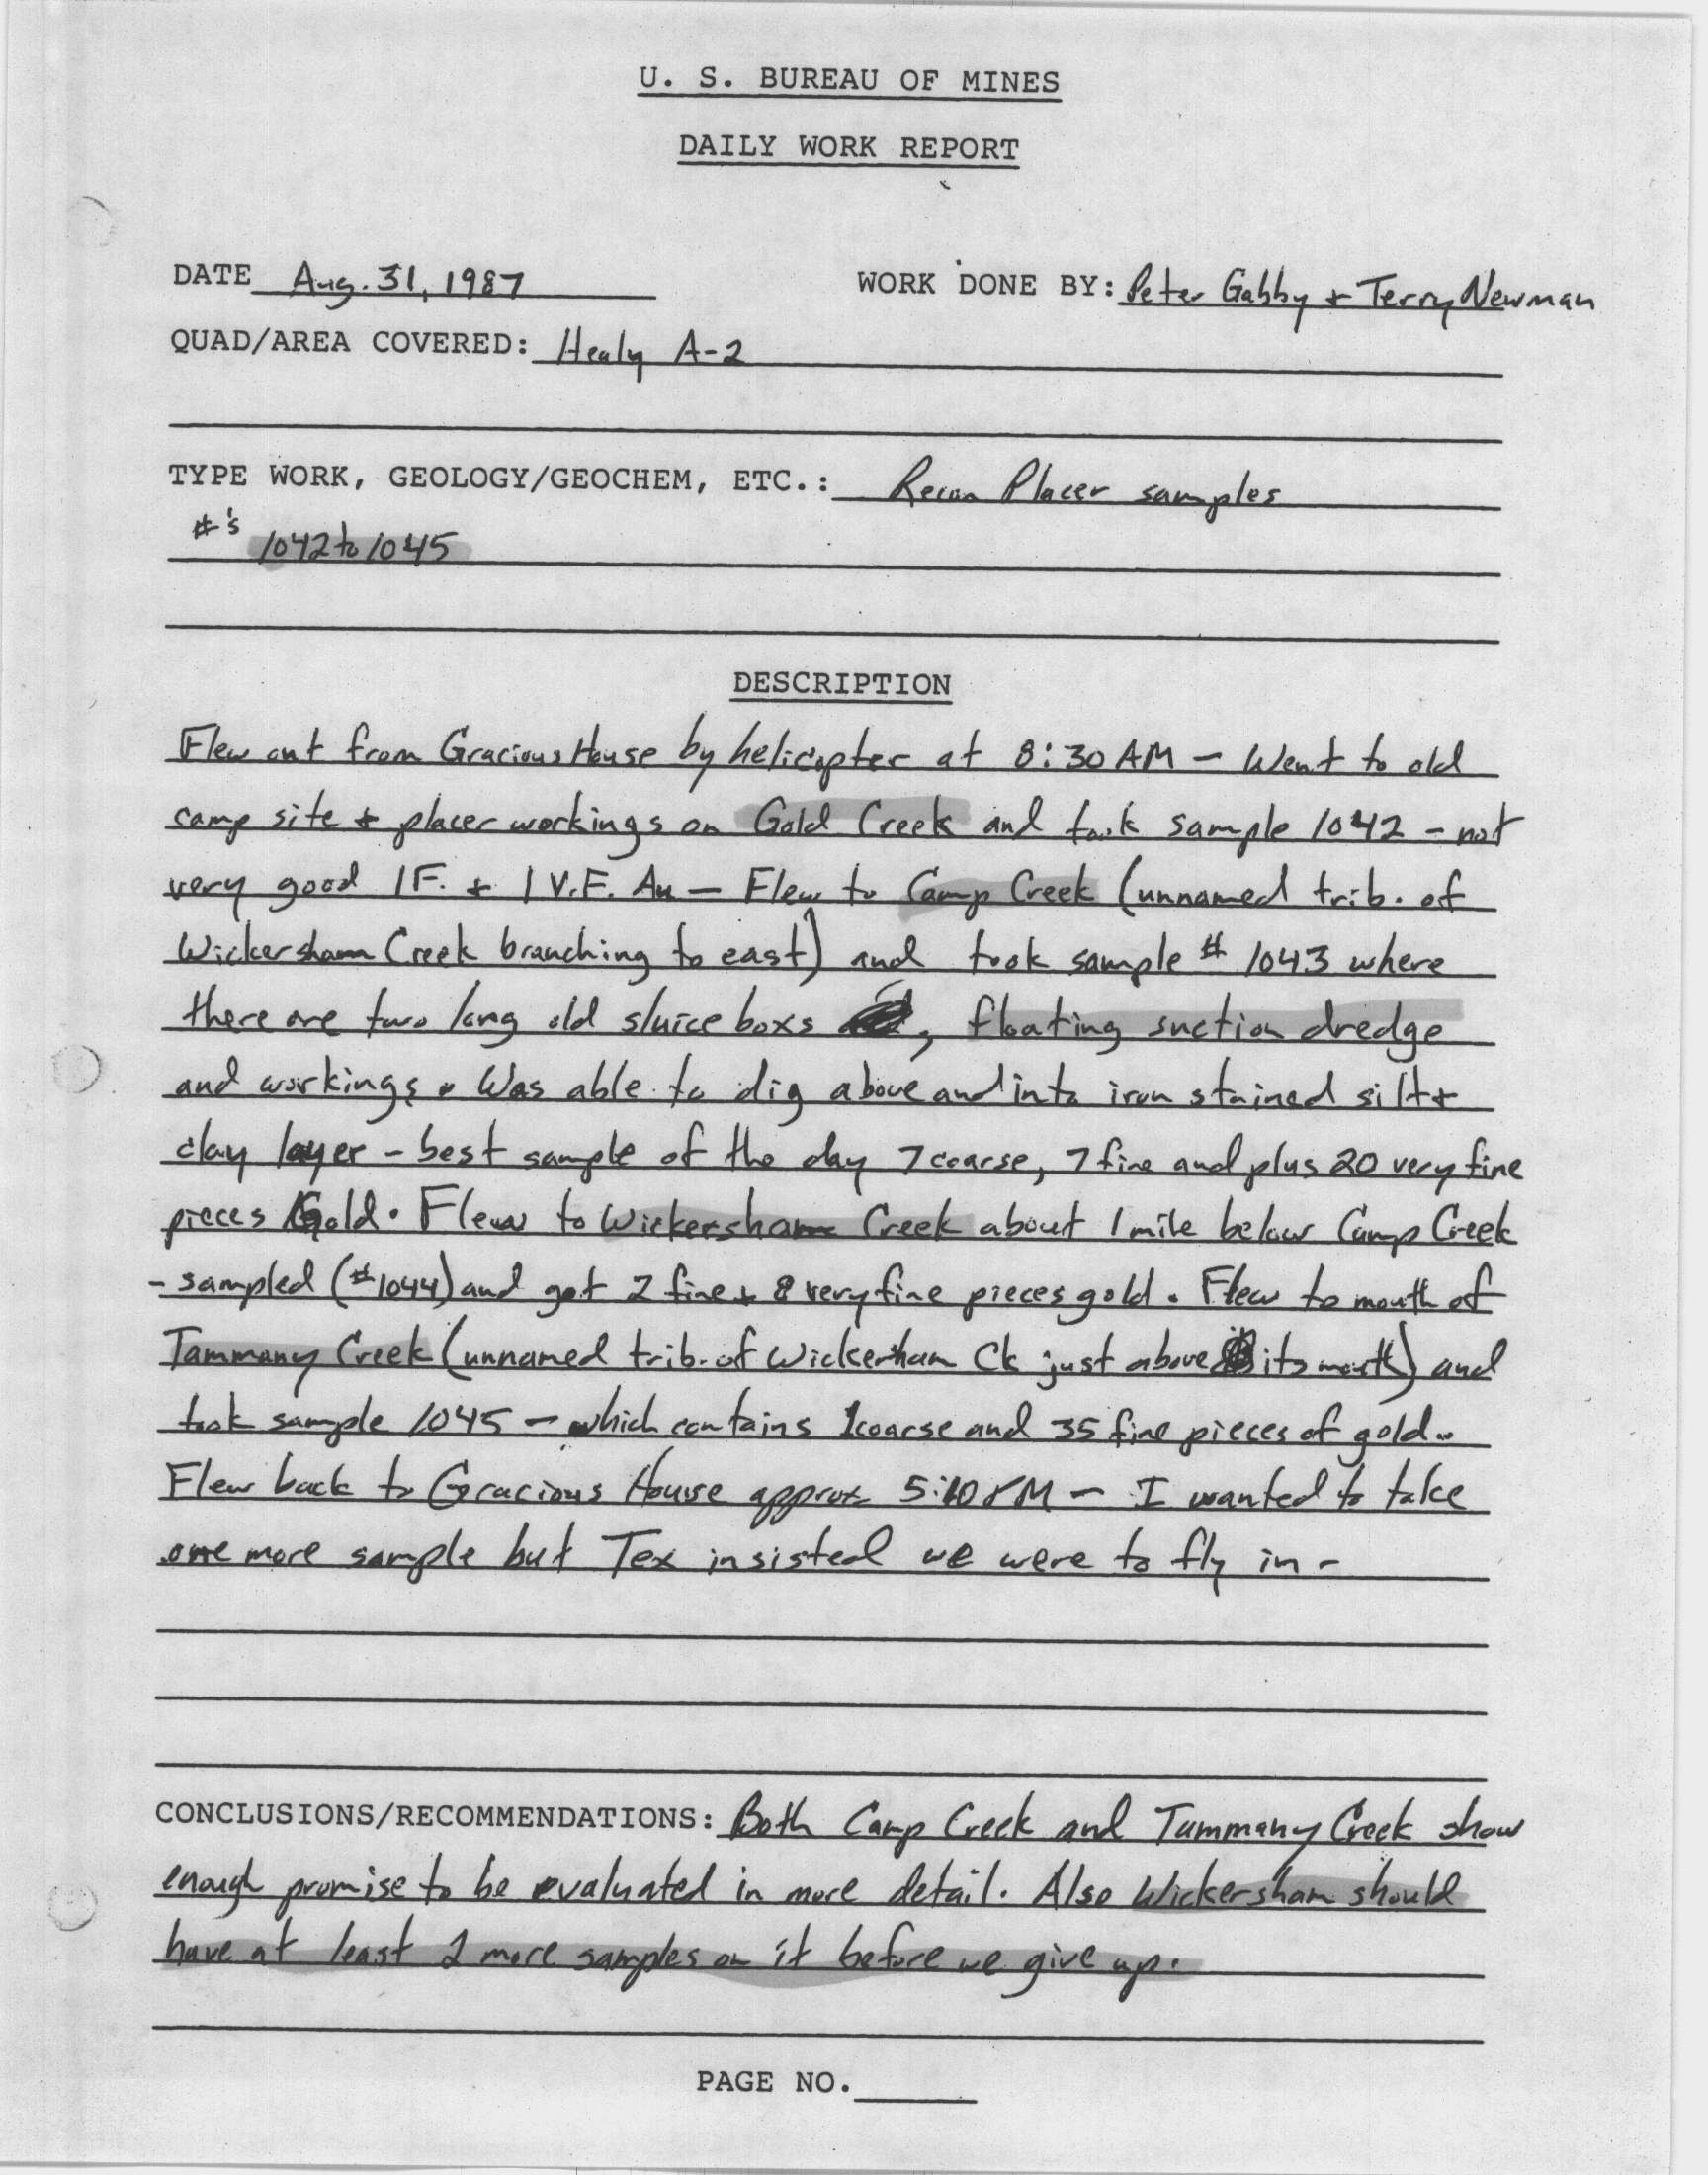 U. S. BUREAU OF MINES
DAILY WORK REPORT
DATE Aug. 31, 1987 WORK DONE BY: Peter Gabby + Terry Newman
QUAD/AREA COVERED: Healy A-2
TYPE WORK, GEOLOGY/GEOCHEM, ETC.: Recon Placer samples
#'s 1042 to 1045
DESCRIPTION
Flew out from Gracious House by helicopter at 8:30 AM - Went to old
camp site + placer workings on Gold Creek and took sample 1042 - not
very good 1 F. + 1 V.F. Au - Flew to Camp Creek (unnamed trib. of
Wickersham Creek branching to east) and took sample # 1043 where
there are two long old sluice boxs , floating suction dredge
and workings. Was able to dig above and into iron stained silt +
clay layer - best sample of the day 7 coarse, 7 fine and plus 20 very fine
pieces Gold. Flew to Wickersham Creek about 1 mile below Camp Creek
- sampled (#1044) and got 2 fine + 8 very fine pieces gold. Flew to mouth of
Tammany Creek (unnamed trib. of Wickersham Ck just above its mouth) and
took sample 1045 - which contains 1 coarse and 35 fine pieces of gold.
Flew back to Gracious House approx 5:10 PM - I wanted to take
one more sample but Tex insisted we were to fly in -
CONCLUSIONS/RECOMMENDATIONS: Both Camp Creek and Tammany Creek show
enough promise to be evaluated in more detail. Also Wickersham should
have at least 2 more samples on it before we give up.
PAGE NO.